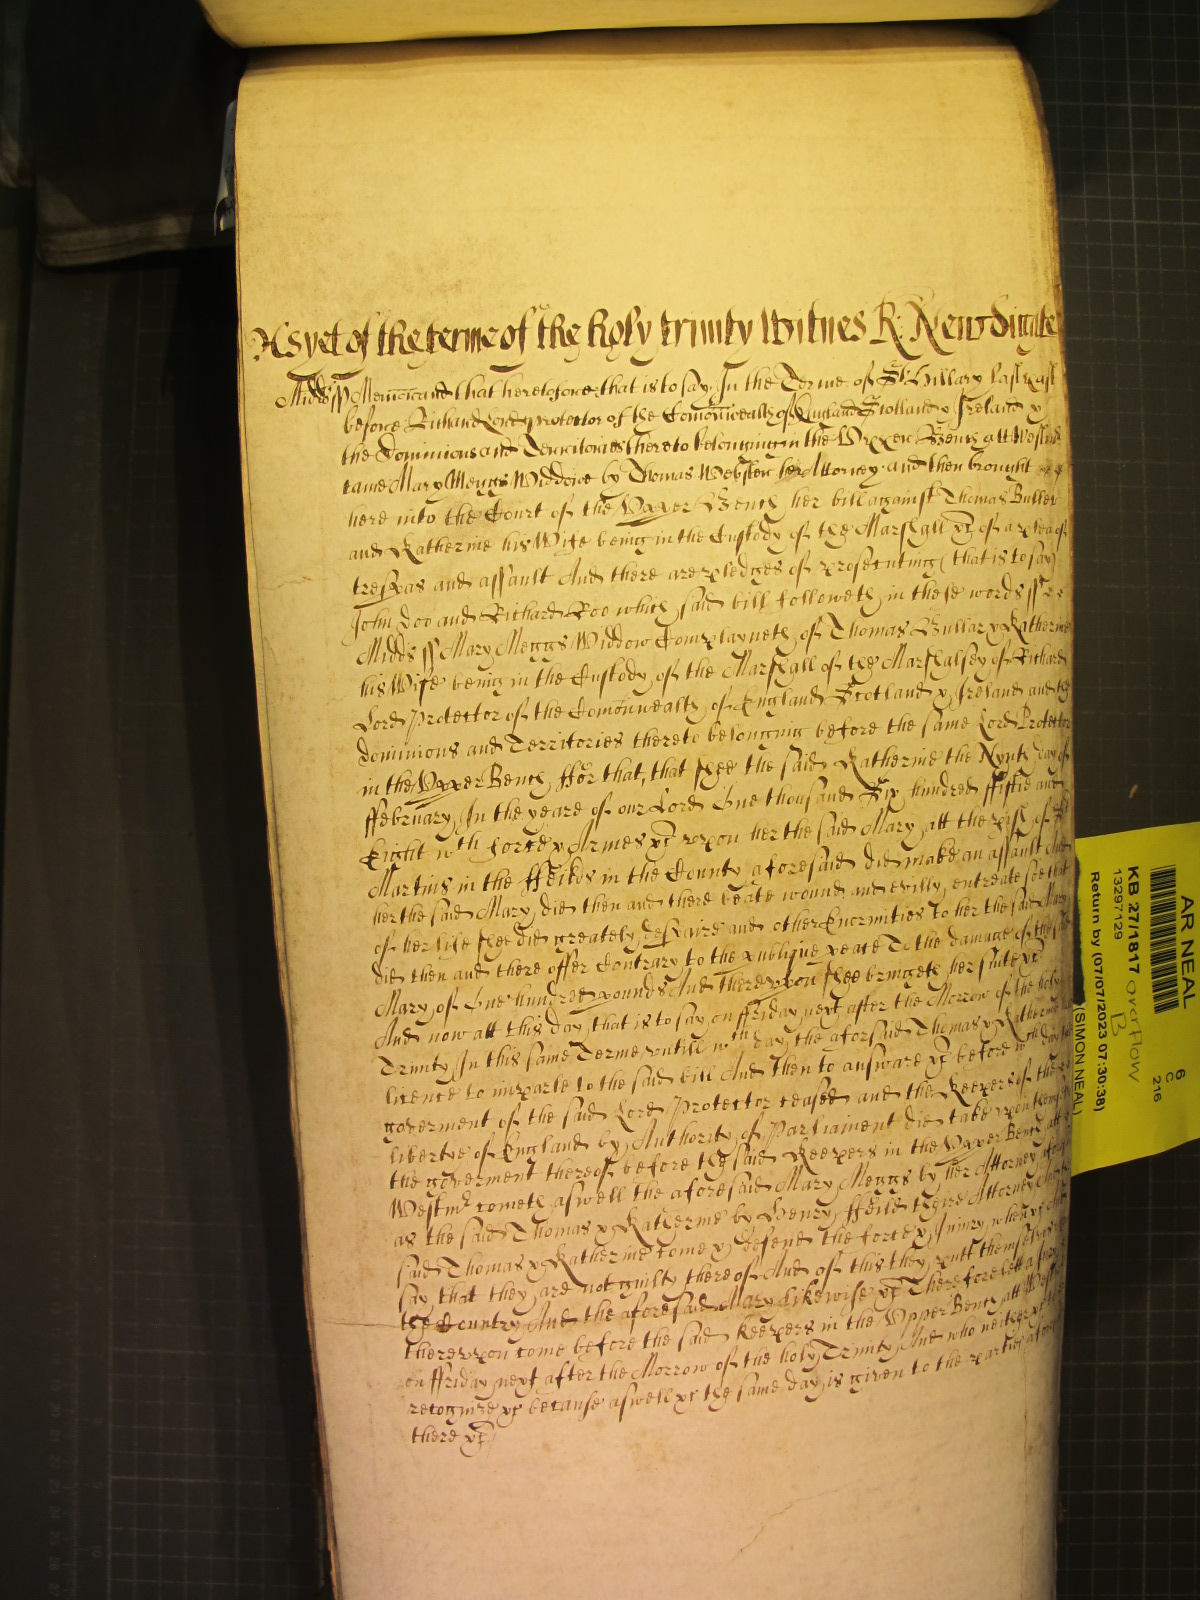 As yet of the terme of the holy Trinity Witnes R: Newdigate
Midds ss Memorand that heretofore that is to say, In the Terme of St Hillary last past
before Richard Lord protector of the Comonwealth of England Scotland & Ireland &
the Dominions and Territories thereto belonging in the Upper Bench att Westm
came Mary Meggs Widdow by Thomas Webster her Attorney and then brought
here into the Court of the Upper Bench her bill against Thomas Buller
and Katherine his Wife being in the Custody of the Marshall &c of a plea of
trespas and assault And there are pledges of prosecuting (that is to say)
John Doo and Richard Roo which said bill followeth in these words ss
Midds ss Mary Meggs Widdow Complayneth of Thomas Bullar & Katherine
his Wife being in the Custody of the Marshall of the Marshalsey of Richard
Lord Protector of the Comonwealth of England Scotland & Ireland and the
dominions and Territories thereto belonging before the same Lord Protector
in the Upper Bench ffor that, that shee the said Katherine the Nynth day of
ffebruary In the yeare of our Lord One thousand Six hundred ffiftie and
Eight wth force & Armes &c uppon her the said Mary att the pish of St
Martins in the ffeilds in the County aforesaid did make an assault And
her the said Mary did then and there beate wound and evilly entreate soe that
of her life shee did greately despaire and other Enormities to her the said Mary
did then and there offer Contrary to the publique peace To the damage of the said
Mary of One hundred pounds And thereuppon shee bringeth her suite &c
And now att this day, that is to say, on ffriday next after the Morrow of the holy
Trinity In this same Terme untill wch day the aforsaid Thomas & Katherine
licence to imparle to the said bill And then to answare &c before wch day the
goverment of the said Lord Protector ceased and the Keepers of the
libertye of England by Authority of Parliament did take upon them
the goverment thereof before the said Keepers in the Upper Bench att
Westmr cometh aswell the aforesaid Mary Meggs by her Attorney aforesaid
as the said Thomas & Katherine by Henry ffeild theire Attorney And the
said Thomas & Katherine come & defend the force & Iniury when &c And
say that they are not guilty thereof And of this they putt themselves
the Country And the aforesaid Mary likewise &c Therefore lett a Jury
thereuppon come before the said Keepers in the Upper Bench att Westm
on ffriday next after the Morrow of the holy Trinity And who neither &c to
recognize &c because aswell &c the same day is given to the parties aforesaid
there &c
AR NEAL
KB 27/1817 overflow
B
13297129
Return by (07/07/2023 07:30:38)
(SIMON NEAL)
6
C
216